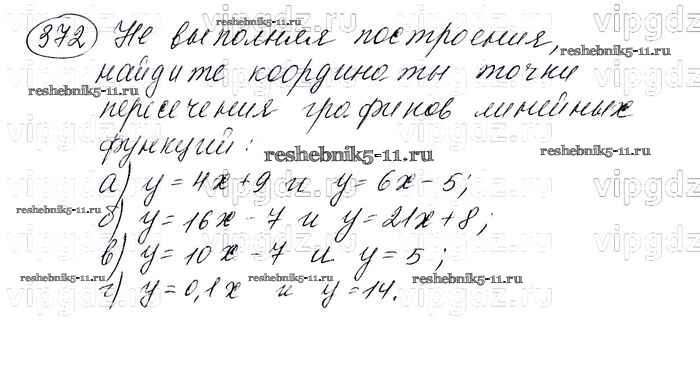 372 Не выполняя построения,
найдите координаты точки
пересечения графиков линейных
функций:
а) y = 4x + 9 и y = 6x - 5;
б) y = 16x - 7 и y = 21x + 8;
в) y = 10x - 7 и y = 5;
г) y = 0,1x и y = 14.
reshebnik5-11.ru
reshebnik5-11.ru
reshebnik5-11.ru
reshebnik5-11.ru
reshebnik5-11.ru
reshebnik5-11.ru
reshebnik5-11.ru
reshebnik5-11.ru
reshebnik5-11.ru
vipgdz.ru
vipgdz.ru
vipgdz.ru
vipgdz.ru